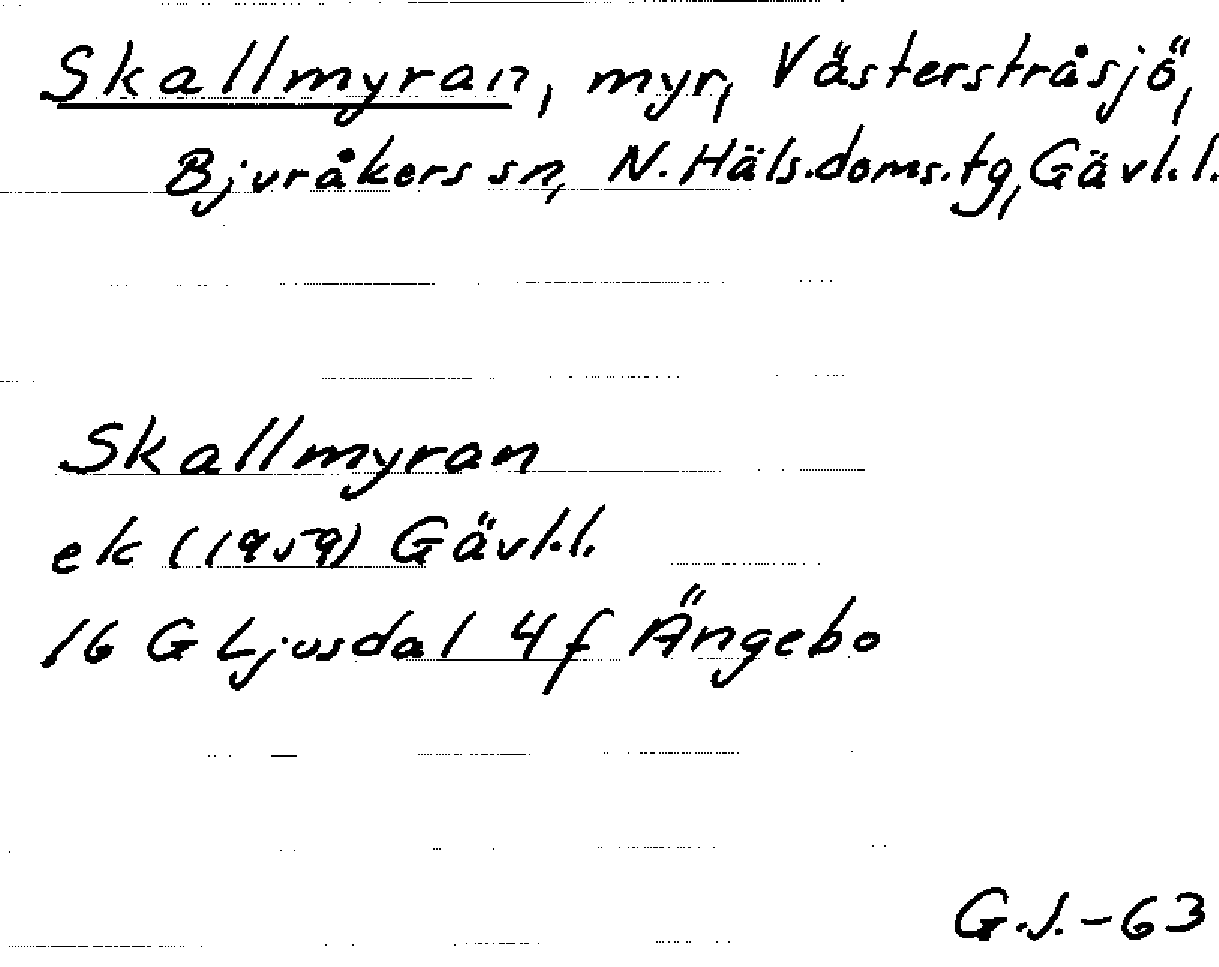 Skallmyran, myr, Västersträsjö,
Bjuråkers sn, N. Häls. doms. tg, Gävl. l.
Skallmyran
ek (1959) Gävl. l.
16 G Ljusdal 4 f Ängebo
G.J.-63